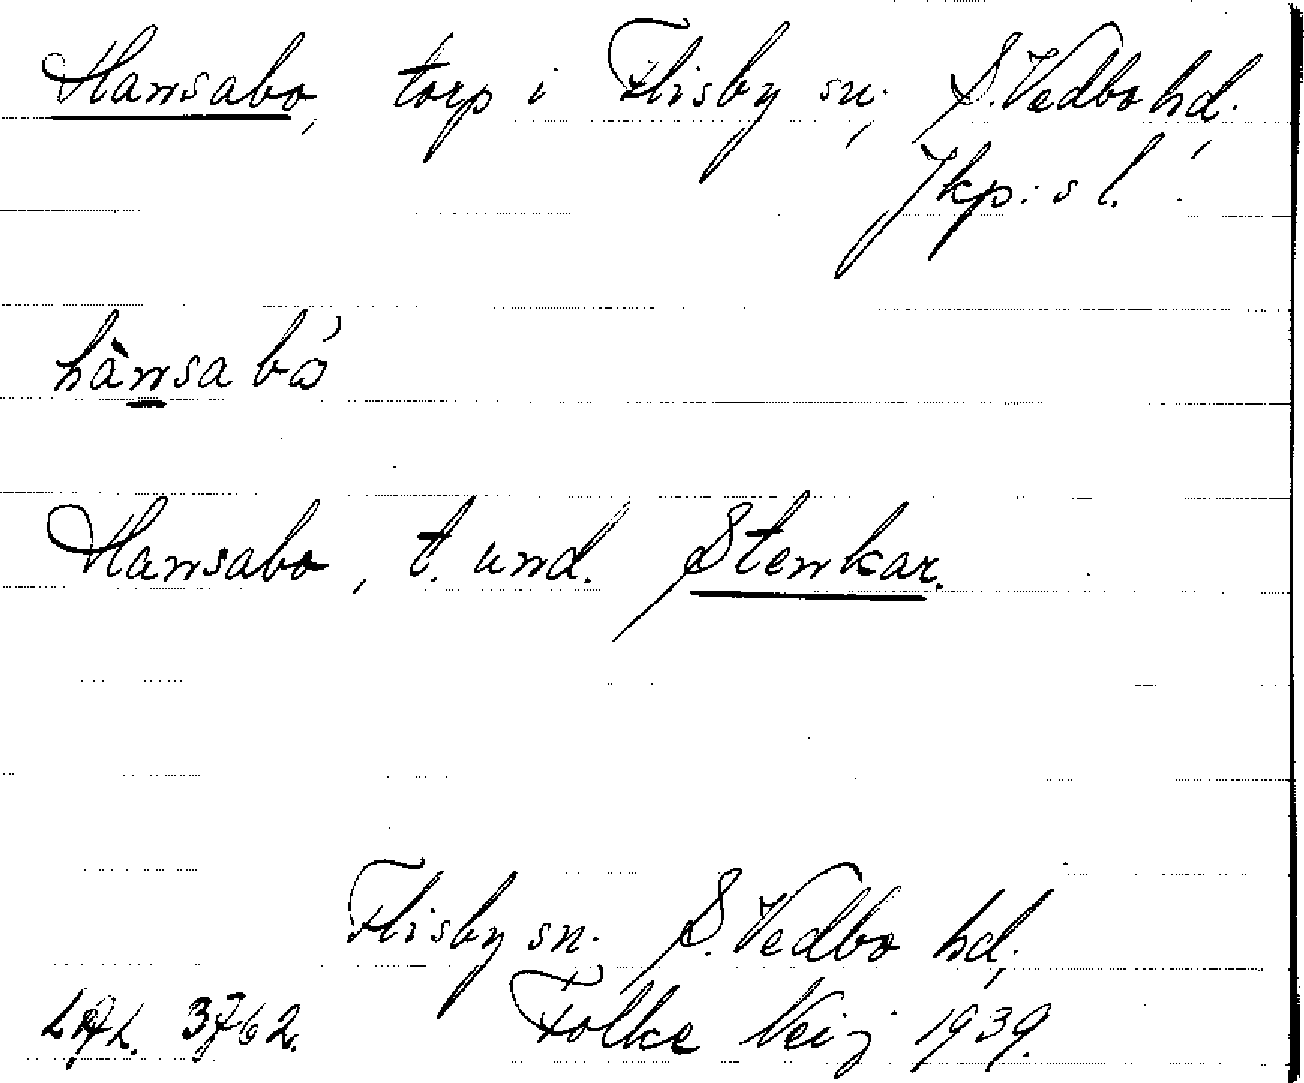 Hansabo, torp i Flisby sn., S. Vedbo hd.,
Jkp:s l.
hànsa bó
Hansabo, t. und. Stenkar.
Flisby sn. S. Vedbo hd.
3762. Folke 1939.